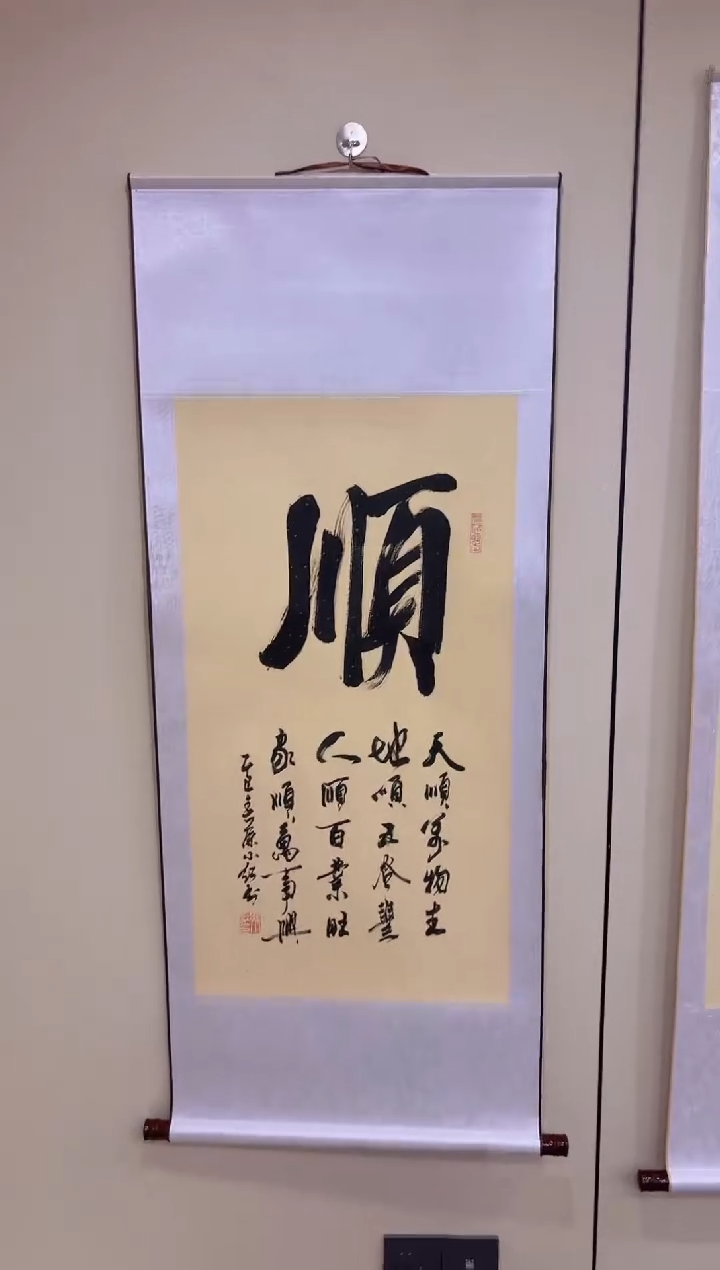 順
天順萬物生
地順五谷豐
人順百業旺
家順萬事興